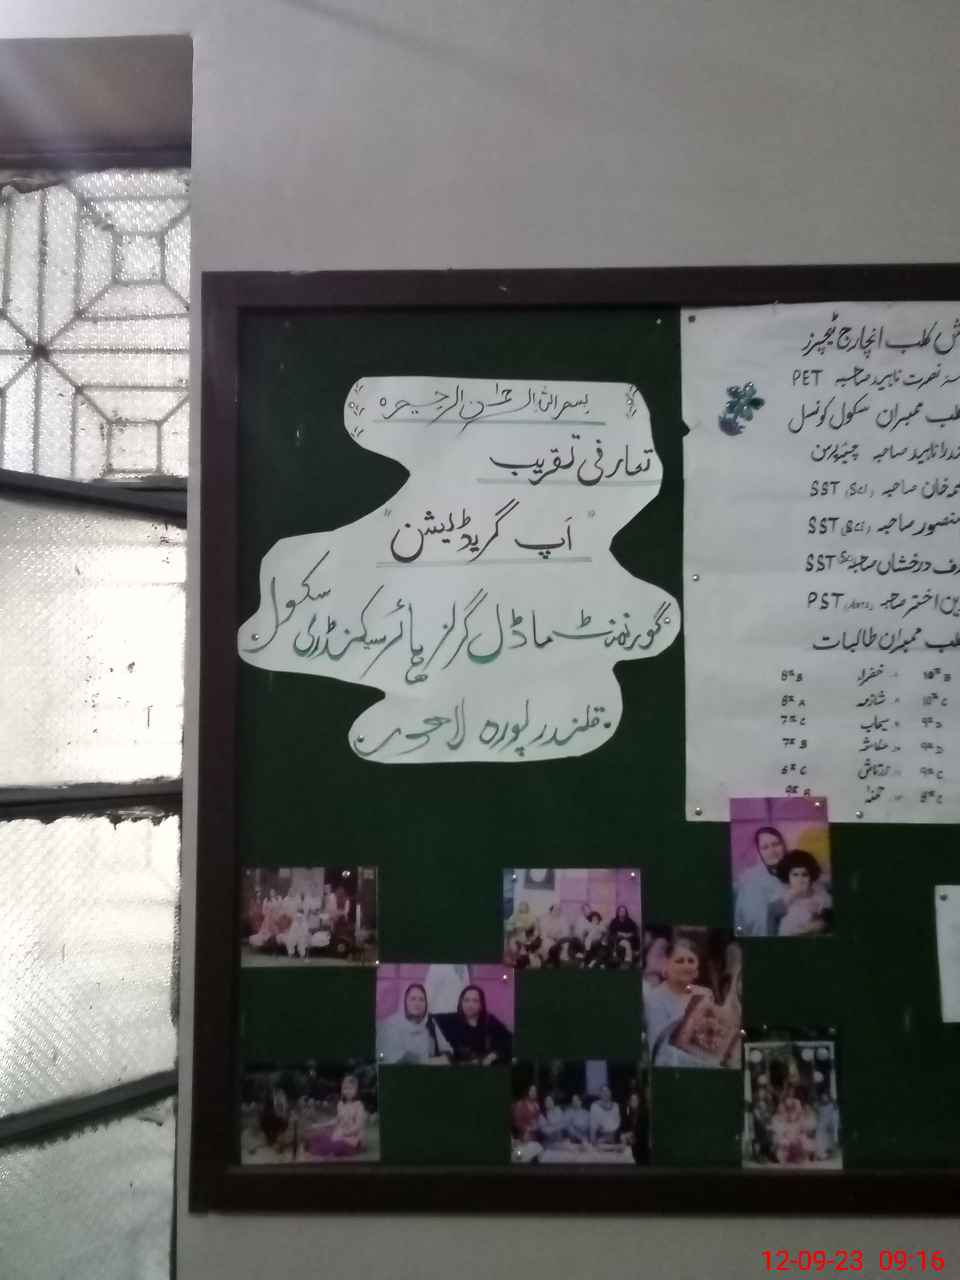 بسم اللہ الرحمٰن الرحیم
تعارفی تقریب
"اَپ گریڈیشن"
گورنمنٹ ماڈل گرلز ہائر سیکنڈری سکول
قلندر پورہ لاہور
کلب انچارج ٹیچرز
نصرت ناہید صاحبہ PET
ممبران سکول کونسل
ناہید صاحبہ چیئرپرسن
خان صاحبہ SST (Sci)
منصور صاحبہ SST (Sci)
درخشاں صاحبہ SST (Sci)
اختر صاحبہ PST (Arts)
ممبران طالبات
10th B خضراء 8th B
10th C شازمہ 8th A
9th D سیماب 7th C
9th D 7th B
9th C 6th C
8th C
12-09-23 09:16